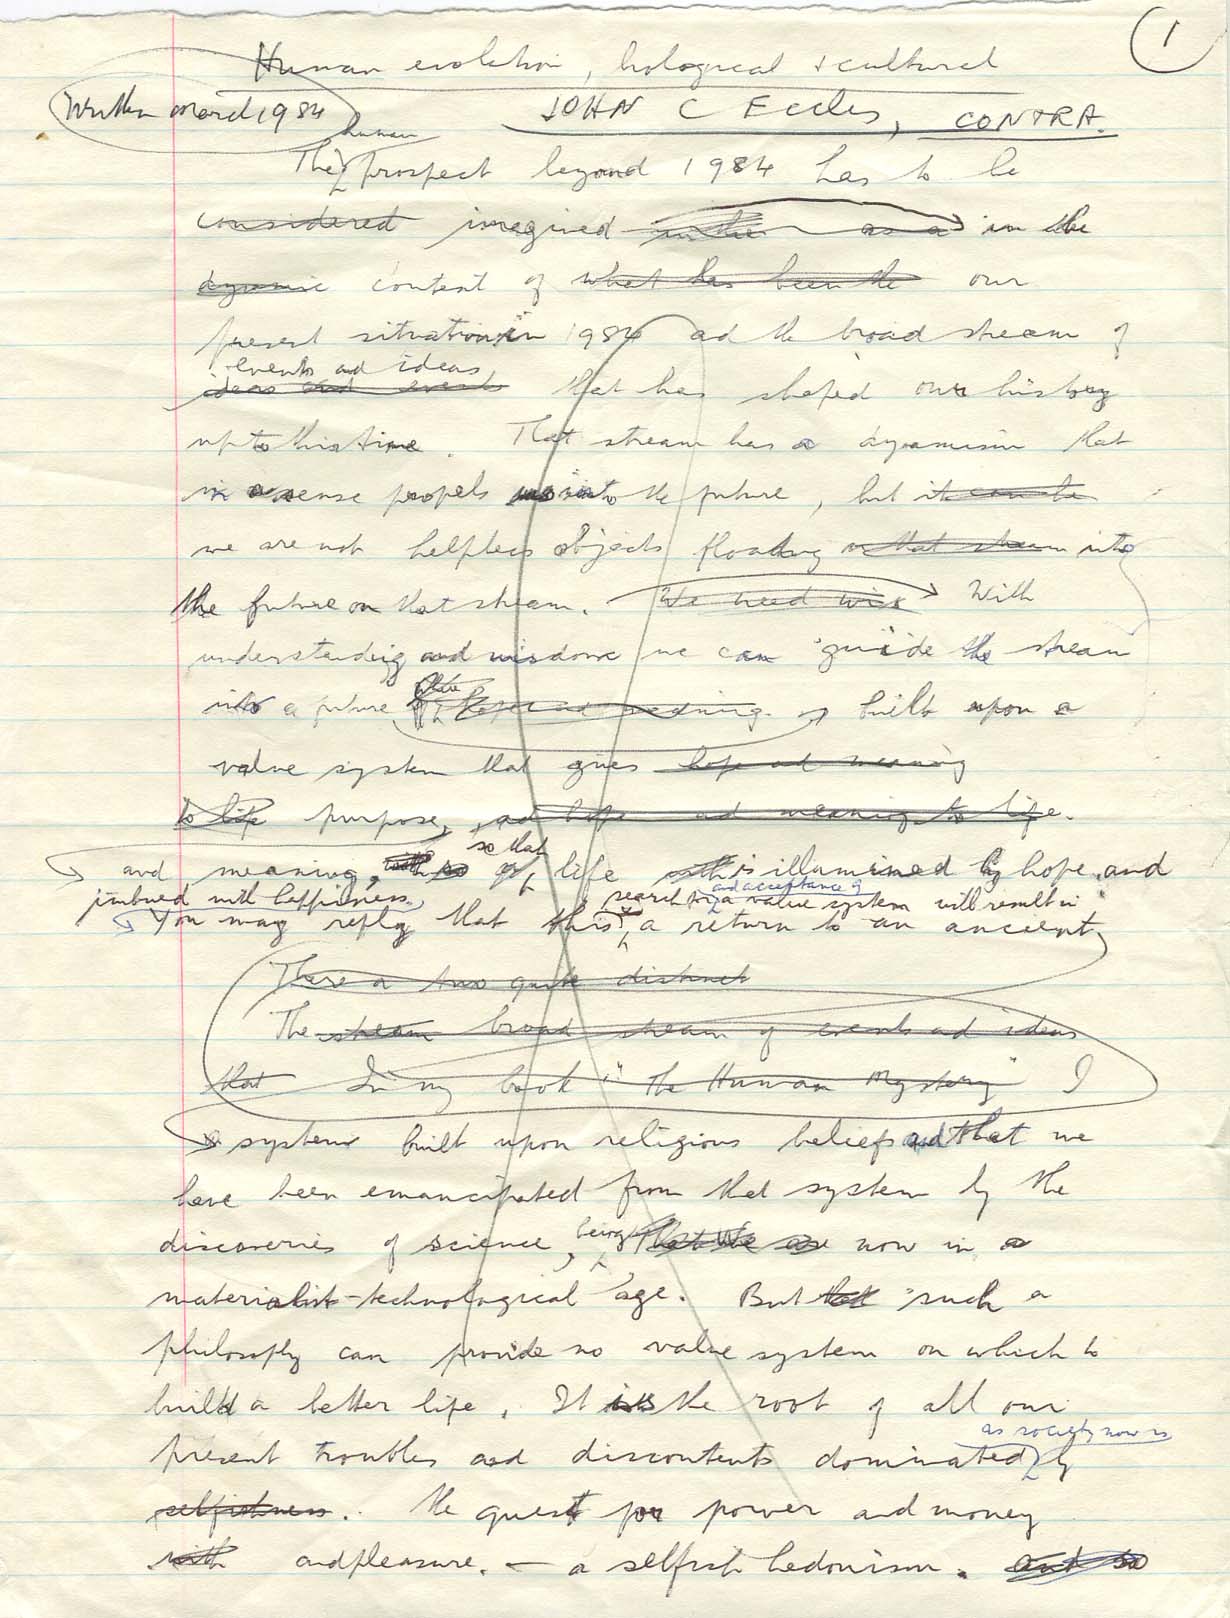 1
Human evolution, biological & cultural
Written March 1984
JOHN C Eccles, CONTRA.
human
The prospect beyond 1984 has to be
considered imagined in the as a in the
dynamic context of what has been the our
present situation in 1984 and the broad stream of
events and ideas
ideas and events that has shaped our history
up to this time. That stream has a dynamism that
in a sense propels us into the future, but it can be
we are not helpless objects floating on that stream into
the future on that stream. We need wis With
understanding and wisdom we can guide the stream
into a future of hope and meaning built upon a
value system that gives hope and meaning
to life purpose, and hope and meaning to life.
so that
and meaning, life is illumined by hope and
imbued with happiness. search for and acceptance of a value system will result in
You may reply that this a return to an ancient
There a two quite distinct
The stream broad stream of events and ideas
that In my book "The Human Mystery" I
system built upon religious beliefs and that we
have been emancipated from that system by the
discoveries of science, being that we are now in a
materialist-technological age. But such a
philosophy can provide no value system on which to
build a better life. It is the root of all our
as society now is
present troubles and discontents dominated by
selfishness. the quest for power and money
with and pleasure. — a selfish hedonism. and so